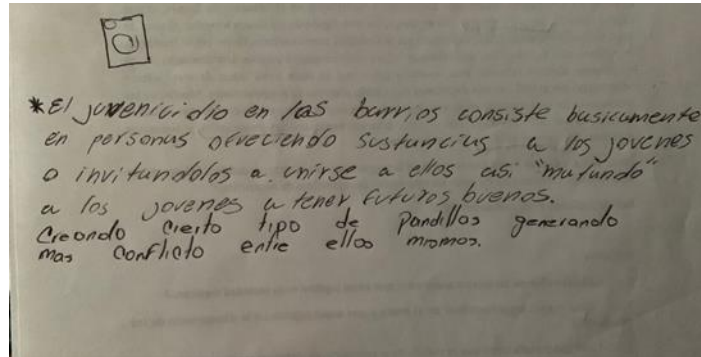 *El juvenicidio en las barrios consiste basicamente
en personas ofreciendo sustancias a los jovenes
o invitandolos a unirse a ellos asi "matando"
a los jovenes a tener futuros buenos.
Creando cierto tipo de pandillas generando
mas conflicto entre ellos mismos.